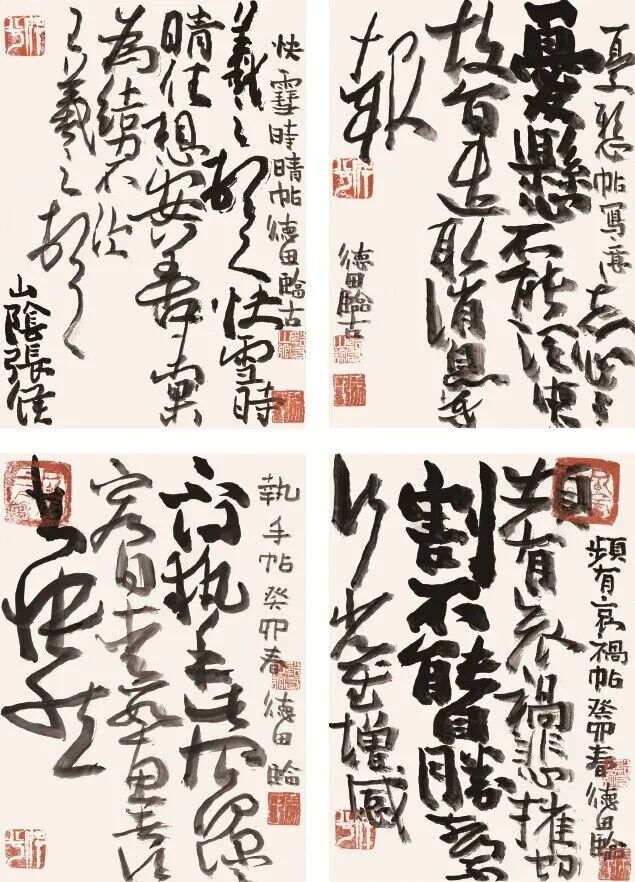 快雪時晴帖德田臨古
羲之頓首快雪時
晴佳想安善未果
為結力不次
王羲之頓首
山陰張侯
憂懸帖寫意
忘心
憂懸不能須臾
故旨遣取消息羲
之報
德田臨古
頻有哀禍帖癸卯春德田臨
頻有哀禍悲摧切
割不能自勝奈
何省慰增感
執手帖癸卯春德田臨
不得執手此恨何深
書悵然